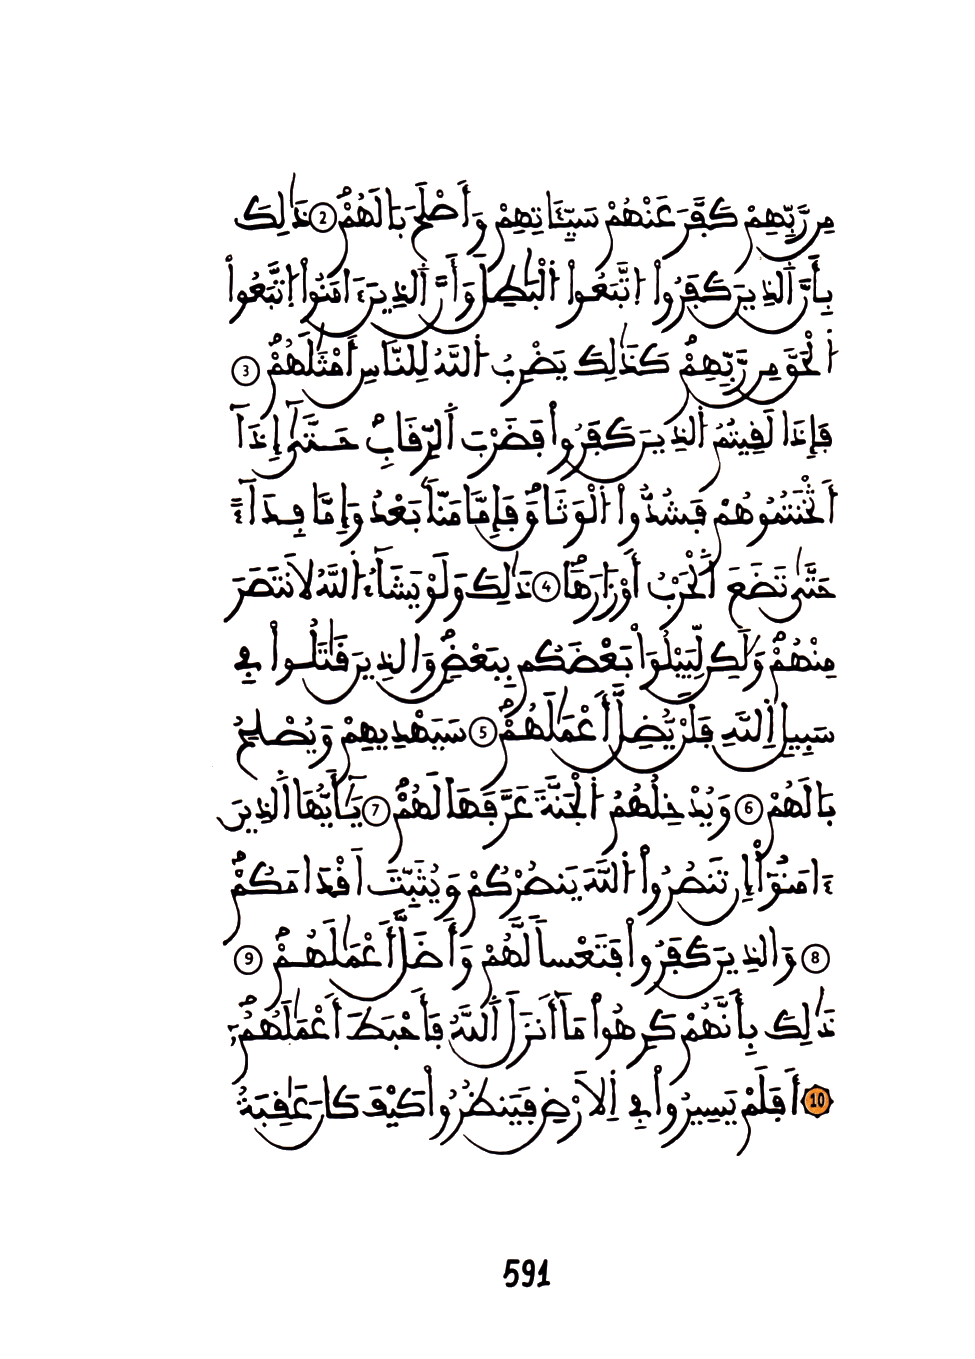 مِن رَّبِّهِمْ كَفَّرَ عَنْهُمْ سَيِّـَٔاتِهِمْ وَأَصْلَحَ بَالَهُمْ 2 ذَٰلِكَ
بِأَنَّ ٱلذِينَ كَفَرُوا۟ اُ۪تَّبَعُوا۟ اُ۬لْبَٰطِلَ وَأَنَّ ٱلذِينَ ءَامَنُوا۟ اُ۪تَّبَعُوا۟
اُ۬لْحَقَّ مِن رَّبِّهِمْ كَذَٰلِكَ يَضْرِبُ اُ۬للَّهُ لِلنَّاسِ أَمْثَٰلَهُمْ 3
فَإِذَا لَقِيتُمُ اُ۬لذِينَ كَفَرُوا۟ فَضَرْبَ اَ۬لرِّقَابِ حَتَّىٰٓ إِذَآ
أَثْخَنتُمُوهُمْ فَشُدُّوا۟ اُ۬لْوَثَاقَ فَإِمَّا مَنّاَۢ بَعْدُ وَإِمَّا فِدَآءً
حَتَّىٰ تَضَعَ اَ۬لْحَرْبُ أَوْزَارَهَا 4 ذَٰلِكَ وَلَوْ يَشَآءُ اُ۬للَّهُ لَانتَصَرَ
مِنْهُمْ وَلَٰكِن لِّيَبْلُوَا۟ بَعْضَكُم بِبَعْضٍ وَالذِينَ قَٰتَلُوا۟ فِي
سَبِيلِ اِ۬للَّهِ فَلَنْ يُّضِلَّ أَعْمَٰلَهُمْ 5 سَيَهْدِيهِمْ وَيُصْلِحُ
بَالَهُمْ 6 وَيُدْخِلُهُمُ اُ۬لْجَنَّةَ عَرَّفَهَا لَهُمْ 7 يَٰٓأَيُّهَا اَ۬لذِينَ
ءَامَنُوٓا۟ إِن تَنصُرُوا۟ اُ۬للَّهَ يَنصُرْكُمْ وَيُثَبِّتَ اَقْدَامَكُمْ
8 وَالذِينَ كَفَرُوا۟ فَتَعْساً لَّهُمْ وَأَضَلَّ أَعْمَٰلَهُمْ 9
ذَٰلِكَ بِأَنَّهُمْ كَرِهُوا۟ مَآ أَنزَلَ اَ۬للَّهُ فَأَحْبَطَ أَعْمَٰلَهُمْ
10 أَفَلَمْ يَسِيرُوا۟ فِي اِ۬لَارْضِ فَيَنظُرُوا۟ كَيْفَ كَانَ عَٰقِبَةُ
591